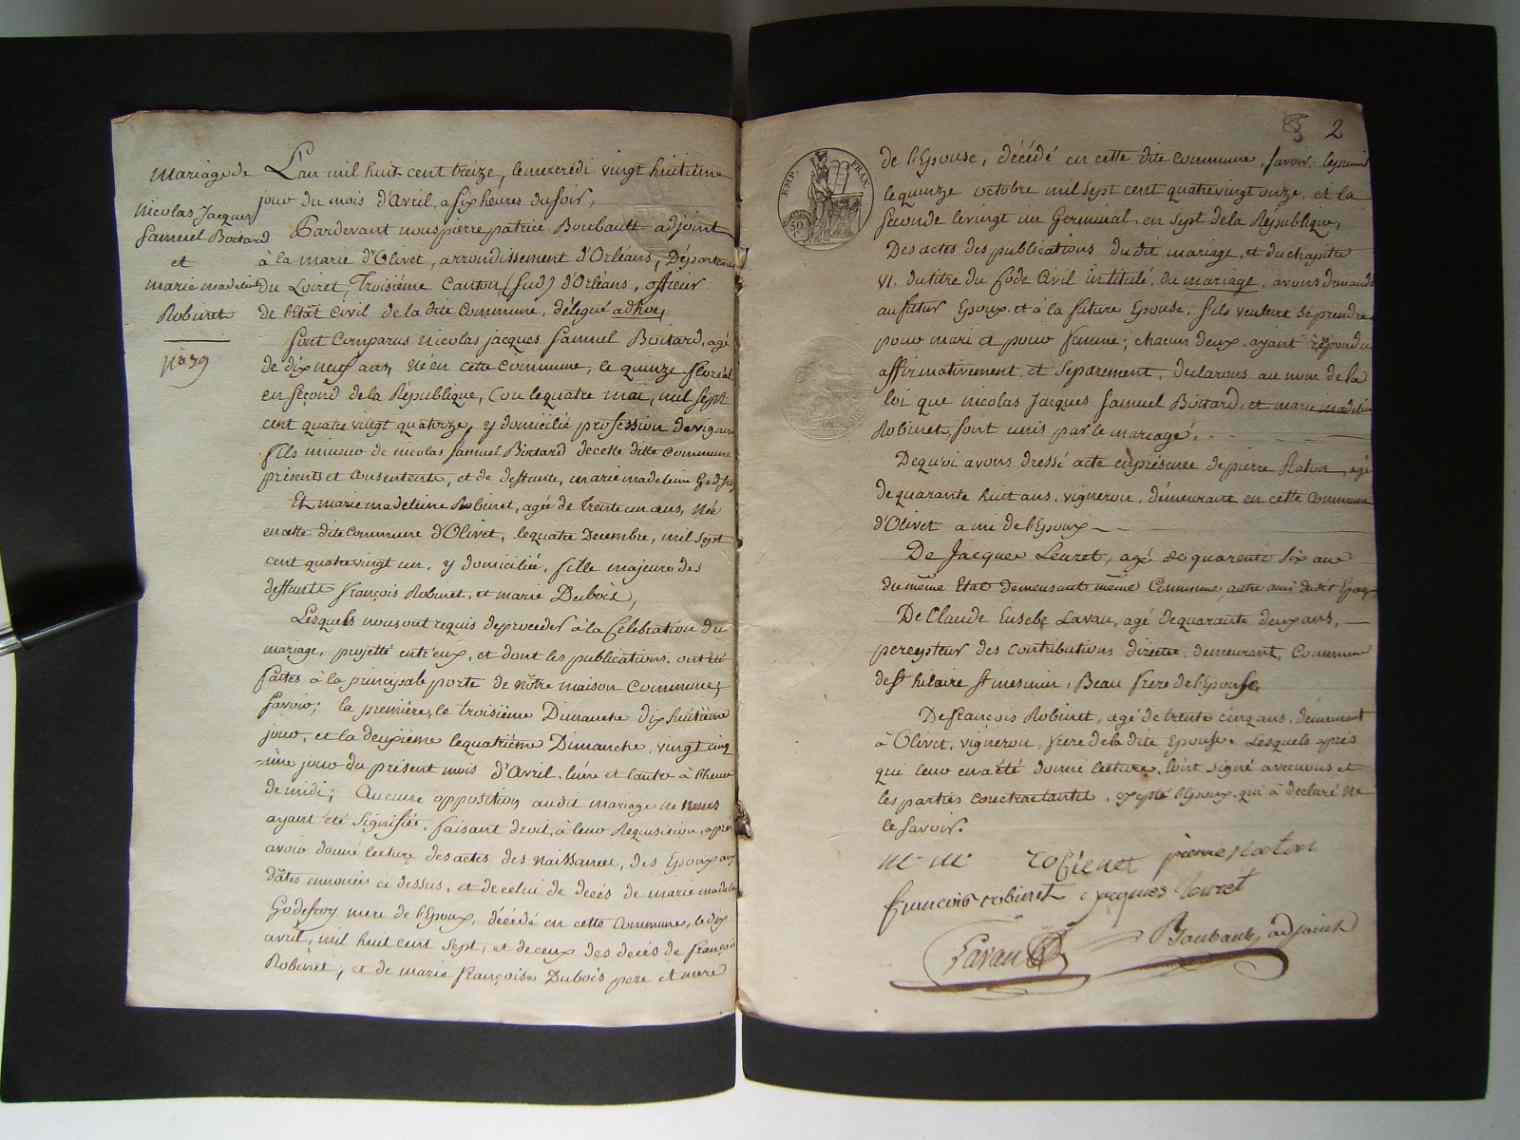 mariage de
nicolas Jacques
Samuel Boitard
et
marie madeleine
Robinet
n° 39
L'an mil huit cent treize, le mercredi vingt huitieme
jour du mois d'Avril, a six heures du soir,
Pardevant nous pierre patrice Boubault adjoint
à la marie d'Olivet, arrondissement d'Orléans, Département
du Loiret, Troisiéme Canton (Sud) d'Orléans, officier
de l'Etat Civil de la dite Commune, délégué adhoc,
Sont Comparus nicolas jacques Samuel Boitard, agé
de dix neuf ans, né en cette Commune, le quinze floréal
en second de la République, (ou le quatre mai, mil sept
cent quatre vingt quatorze, y domicilié profession de vigneron
fils mineur de nicolas Samuel Boitard de cette ditte Commune
présent et Consentente, et de deffunte, marie madeleine Godefroy
Et marie madeleine Robinet, agée de trente un ans, Née
en cette dite Commune d'Olivet, le quatre Decembre, mil sept
cent quatre vingt un, y domiciliée, fille majeure des
deffunts françois Robinet, et marie Dubois,
Lesquels nous ont requis de proceder à la Célébration du
mariage, projetté entr'eux, et dont les publications ont été
faites à la principale porte de nôtre maison Commune;
Savoir; la première, le troisiéme Dimanche dix huitième
jour, et la deuxiéme le quatriéme Dimanche, vingt cinq
-ième jour du présent mois d'Avril, l'une et l'autre à l'heure
de midi; Aucune opposition audit mariage ne nous
ayant été signifiée, faisant droit, à leur Réquisition, après
avoir donné lecture des actes des naissances, des Epoux aux
dâtes énnoncées ci dessus, et de celui de décés de marie madeleine
Godefroy mere de l'Epoux, décédé en cette Commune, le dix
avril, mil huit cent sept, et de ceux des decés de françois
Robinet, et de marie françoise Dubois pere et mere
2
EMP. FRAN.
50
de l'Epouse, décédé en cette dite commune, Savoir; le premier
le quinze octobre mil sept cent quatre vingt onze, et la
Seconde le vingt un Germinal, en sept de la République,
Des actes des publications du dit mariage, et du chapitre
VI. du titre du Code Civil intitulé, du mariage, avons demandé
au futur Epoux, et à la future Epouse, s'ils veulent se prendre
pour mari et pour femme; chacun deux ayant répondu
affirmativement, et Séparément, déclarons au nom de la
loi que nicolas Jacques Samuel Boitard, et marie madeleine
Robinet, sont unis par le mariage,
De quoi avons dressé acte en présence de pierre Raton, agé
de quarante huit ans, vigneron, démeurant en cette Commune
d'Olivet ami de l'Epoux
De Jacques Leuret, agé de quarente six ans
du même Etat demeurant même Commune, autre ami dudit Epoux
De Claude Eusebe Lavau, agé de quarante deux ans,
percepteur des contributions directe, demeurant, Commune
de St hilaire St mesmin, Beau frere de l'Epouse,
De françois Robinet, agé de trente cinq ans, démeurant
à Olivet, vigneron, frere de la dite Epouse. Lesquels après
que leur en a été donné lecture, l'ont signé avec nous et
les parties contractantes, excepté l'Epoux, qui à declaré ne
le savoir.
M. M. Robienet pierre Raton
françois robinet jacques Leuret
Lavau Boubault, adjoint